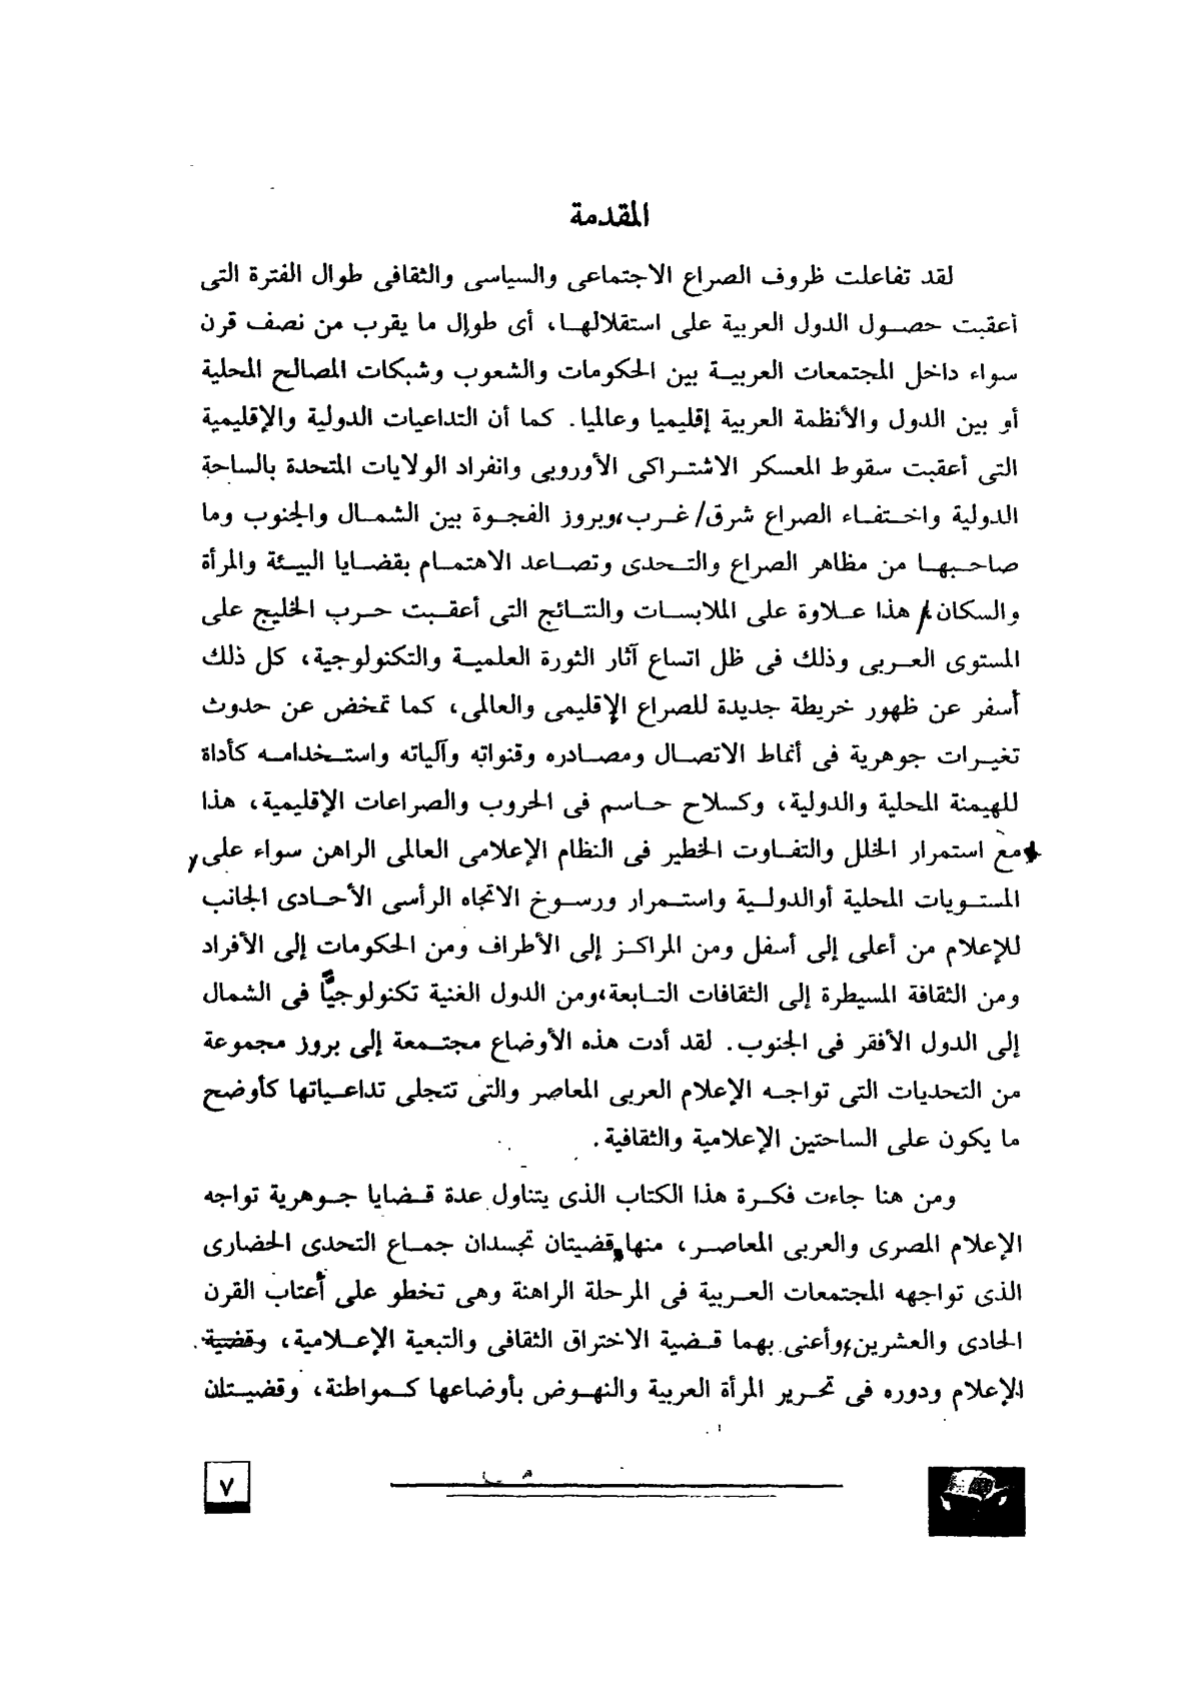 المقدمة
لقد تفاعلت ظروف الصراع الاجتماعى والسياسى والثقافى طوال الفترة التى
أعقبت حصول الدول العربية على استقلالها، أى طوال ما يقرب من نصف قرن
سواء داخل المجتمعات العربية بين الحكومات والشعوب وشبكات المصالح المحلية
أو بين الدول والأنظمة العربية إقليميا وعالميا. كما أن التداعيات الدولية والإقليمية
التى أعقبت سقوط المعسكر الاشتراكى الأوروبى وانفراد الولايات المتحدة بالساحة
الدولية واختفاء الصراع شرق/غرب، وبروز الفجوة بين الشمال والجنوب وما
صاحبها من مظاهر الصراع والتحدى وتصاعد الاهتمام بقضايا البيئة والمرأة
والسكان، هذا علاوة على الملابسات والنتائج التى أعقبت حرب الخليج على
المستوى العربى وذلك فى ظل اتساع آثار الثورة العلمية والتكنولوجية، كل ذلك
أسفر عن ظهور خريطة جديدة للصراع الإقليمى والعالمى، كما تمخض عن حدوث
تغيرات جوهرية فى أنماط الاتصال ومصادره وقنواته وآلياته واستخدامه كأداة
للهيمنة المحلية والدولية، وكسلاح حاسم فى الحروب والصراعات الإقليمية، هذا
مع استمرار الخلل والتفاوت الخطير فى النظام الإعلامى العالمى الراهن سواء على
المستويات المحلية أوالدولية واستمرار ورسوخ الاتجاه الرأسى الأحادى الجانب
للإعلام من أعلى إلى أسفل ومن المراكز إلى الأطراف ومن الحكومات إلى الأفراد
ومن الثقافة المسيطرة إلى الثقافات التابعة، ومن الدول الغنية تكنولوجيًّا فى الشمال
إلى الدول الأفقر فى الجنوب. لقد أدت هذه الأوضاع مجتمعة إلى بروز مجموعة
من التحديات التى تواجه الإعلام العربى المعاصر والتى تتجلى تداعياتها كأوضح
ما يكون على الساحتين الإعلامية والثقافية.
ومن هنا جاءت فكرة هذا الكتاب الذى يتناول عدة قضايا جوهرية تواجه
الإعلام المصرى والعربى المعاصر، منها قضيتان تجسدان جماع التحدى الحضارى
الذى تواجهه المجتمعات العربية فى المرحلة الراهنة وهى تخطو على أعتاب القرن
الحادى والعشرين، وأعنى بهما قضية الاختراق الثقافى والتبعية الإعلامية، وقضية
الإعلام ودوره فى تحرير المرأة العربية والنهوض بأوضاعها كمواطنة، وقضيتان
٧